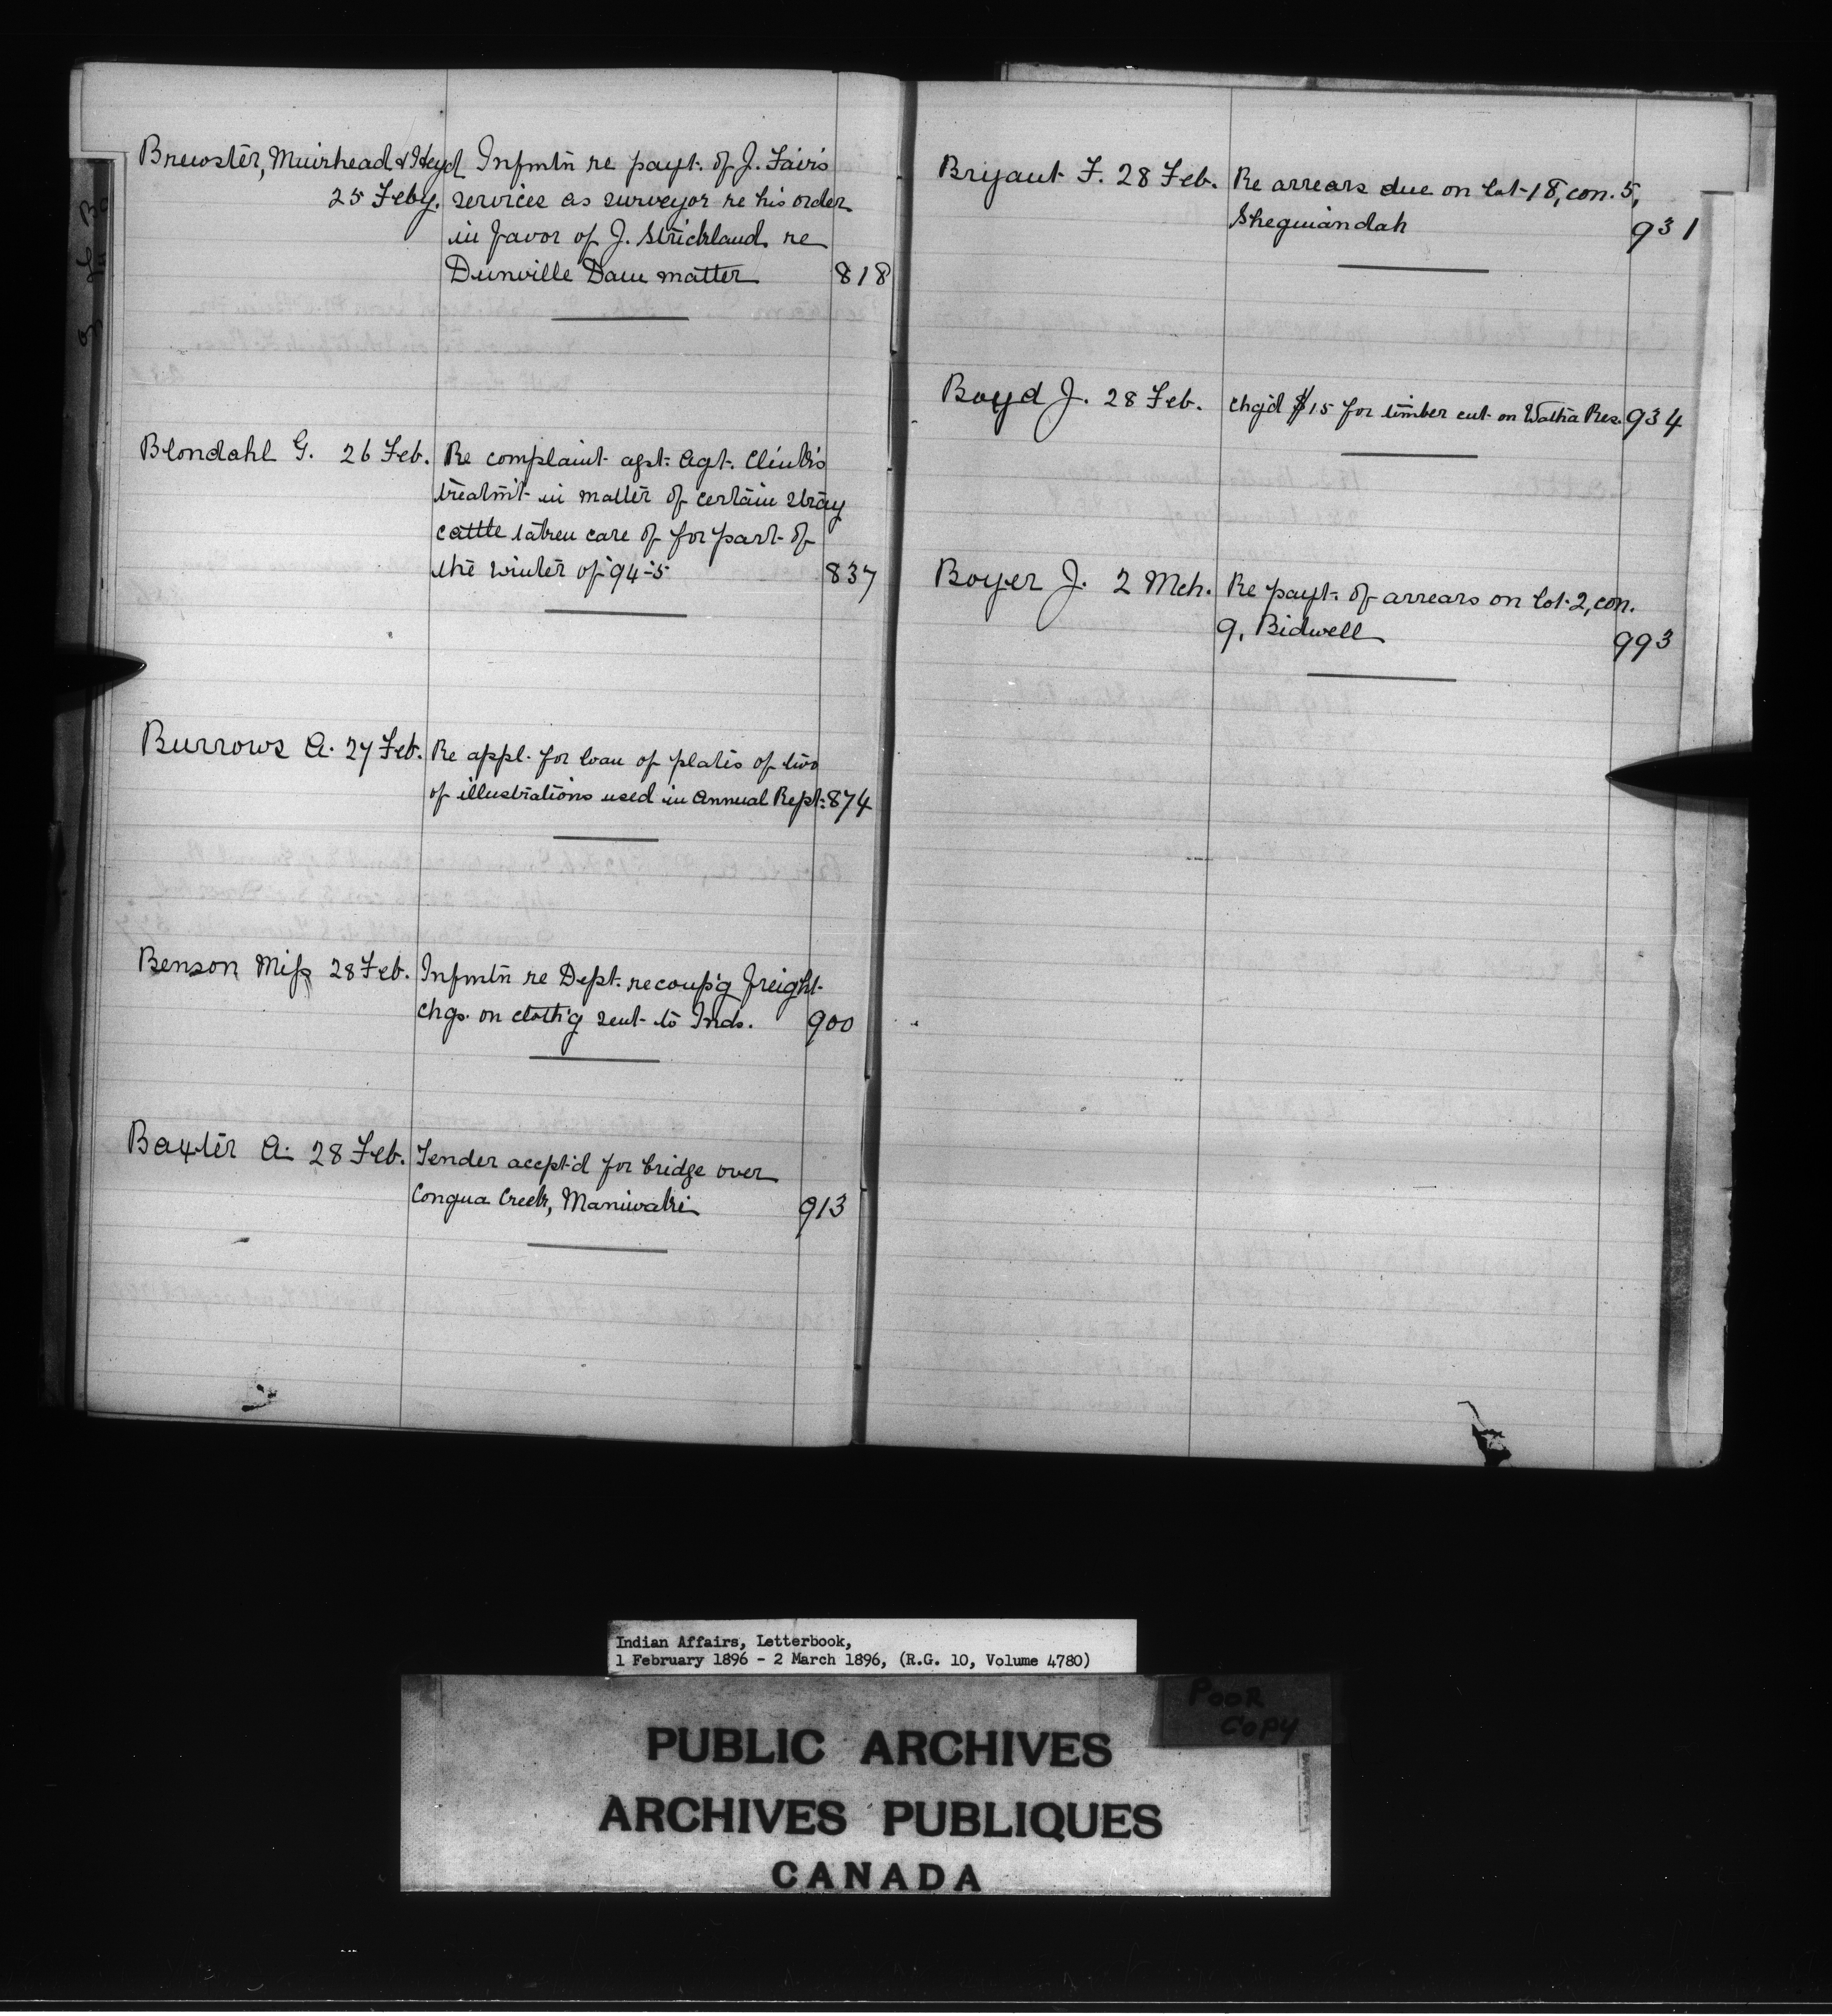 Brewster, Muirhead & Heyd Infmtn re payt. of J. Fair's
25 Feby. services as surveyor re his order
in favor of J. Strickland re
Dunnville Dam matter 818
Blondahl G. 26 Feb. Re complaint agst. Agt. Clink's
treatm't in matter of certain stray
cattle taken care of for part of
the winter of '94-5 837
Burrows A. 27 Feb. Re appl. for loan of plates of two
of illustrations used in Annual Rept. 874
Benson Miss 28 Feb. Infmtn re Dept. recoup'g freight
chgs. on cloth'g sent to Inds. 900
Baxter A. 28 Feb. Tender accept'd for bridge over
Congua Creek, Maniwaki 913
Bryant F. 28 Feb. Re arrears due on lot 18, con. 5,
Sheguiandah 931
Boyd J. 28 Feb. Chg'd $15 for timber cut on Watha Res. 934
Boyer J. 2 Mch. Re payt. of arrears on lot 2, con.
9, Bidwell 993
Indian Affairs, Letterbook,
1 February 1896 - 2 March 1896, (R.G. 10, Volume 4780)
POOR
COPY
PUBLIC ARCHIVES
ARCHIVES PUBLIQUES
CANADA